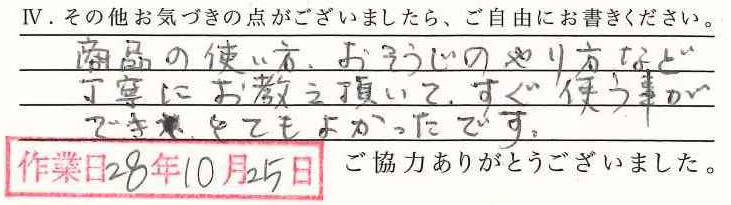 Ⅳ.その他お気づきの点がございましたら、ご自由にお書きください。
商品の使い方、おそうじのやり方など
丁寧にお教え頂いて、すぐ使う事が
でき、とてもよかったです。
作業日28年10月25日
ご協力ありがとうございました。